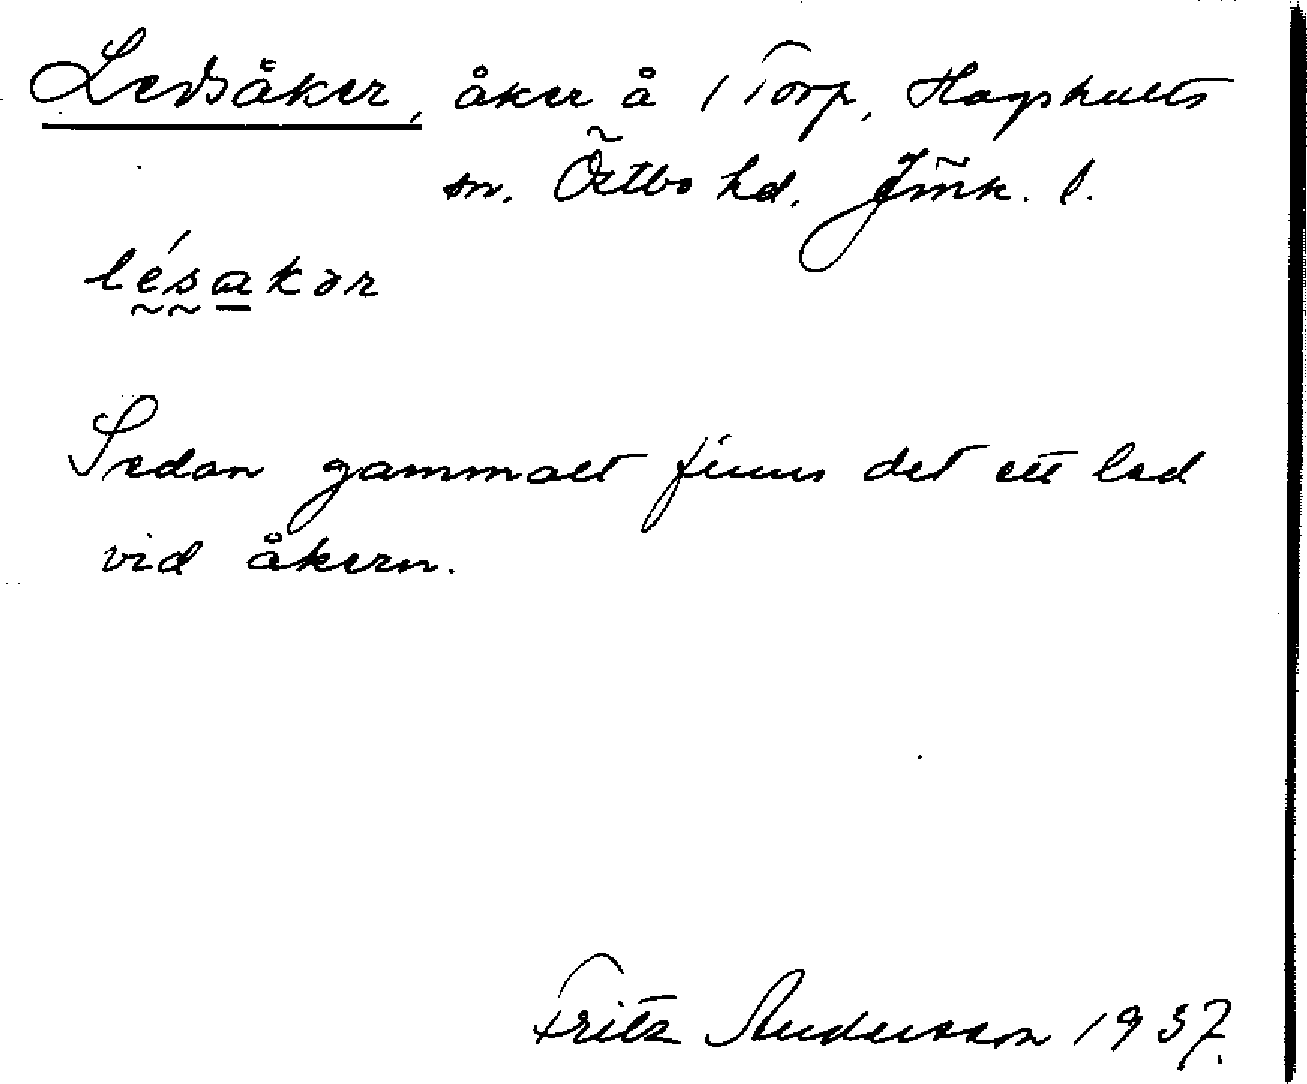 Ledsåker, åker å 1 Torp, Hagshults
sn. Östbo hd. Jönk. l.
lésakər
Sedan gammalt finns det ett led
vid åkern.
Fritz Andersson 1937.